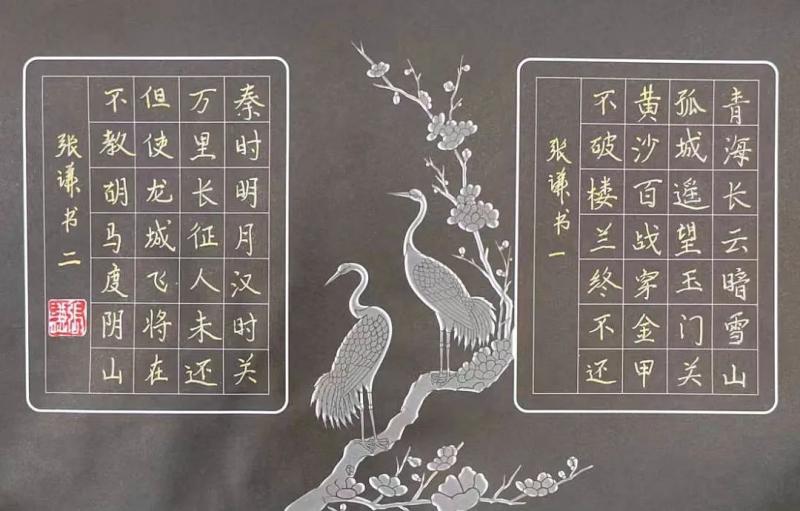 青海长云暗雪山
孤城遥望玉门关
黄沙百战穿金甲
不破楼兰终不还
张谦书一
秦时明月汉时关
万里长征人未还
但使龙城飞将在
不教胡马度阴山
张谦书二
張謙